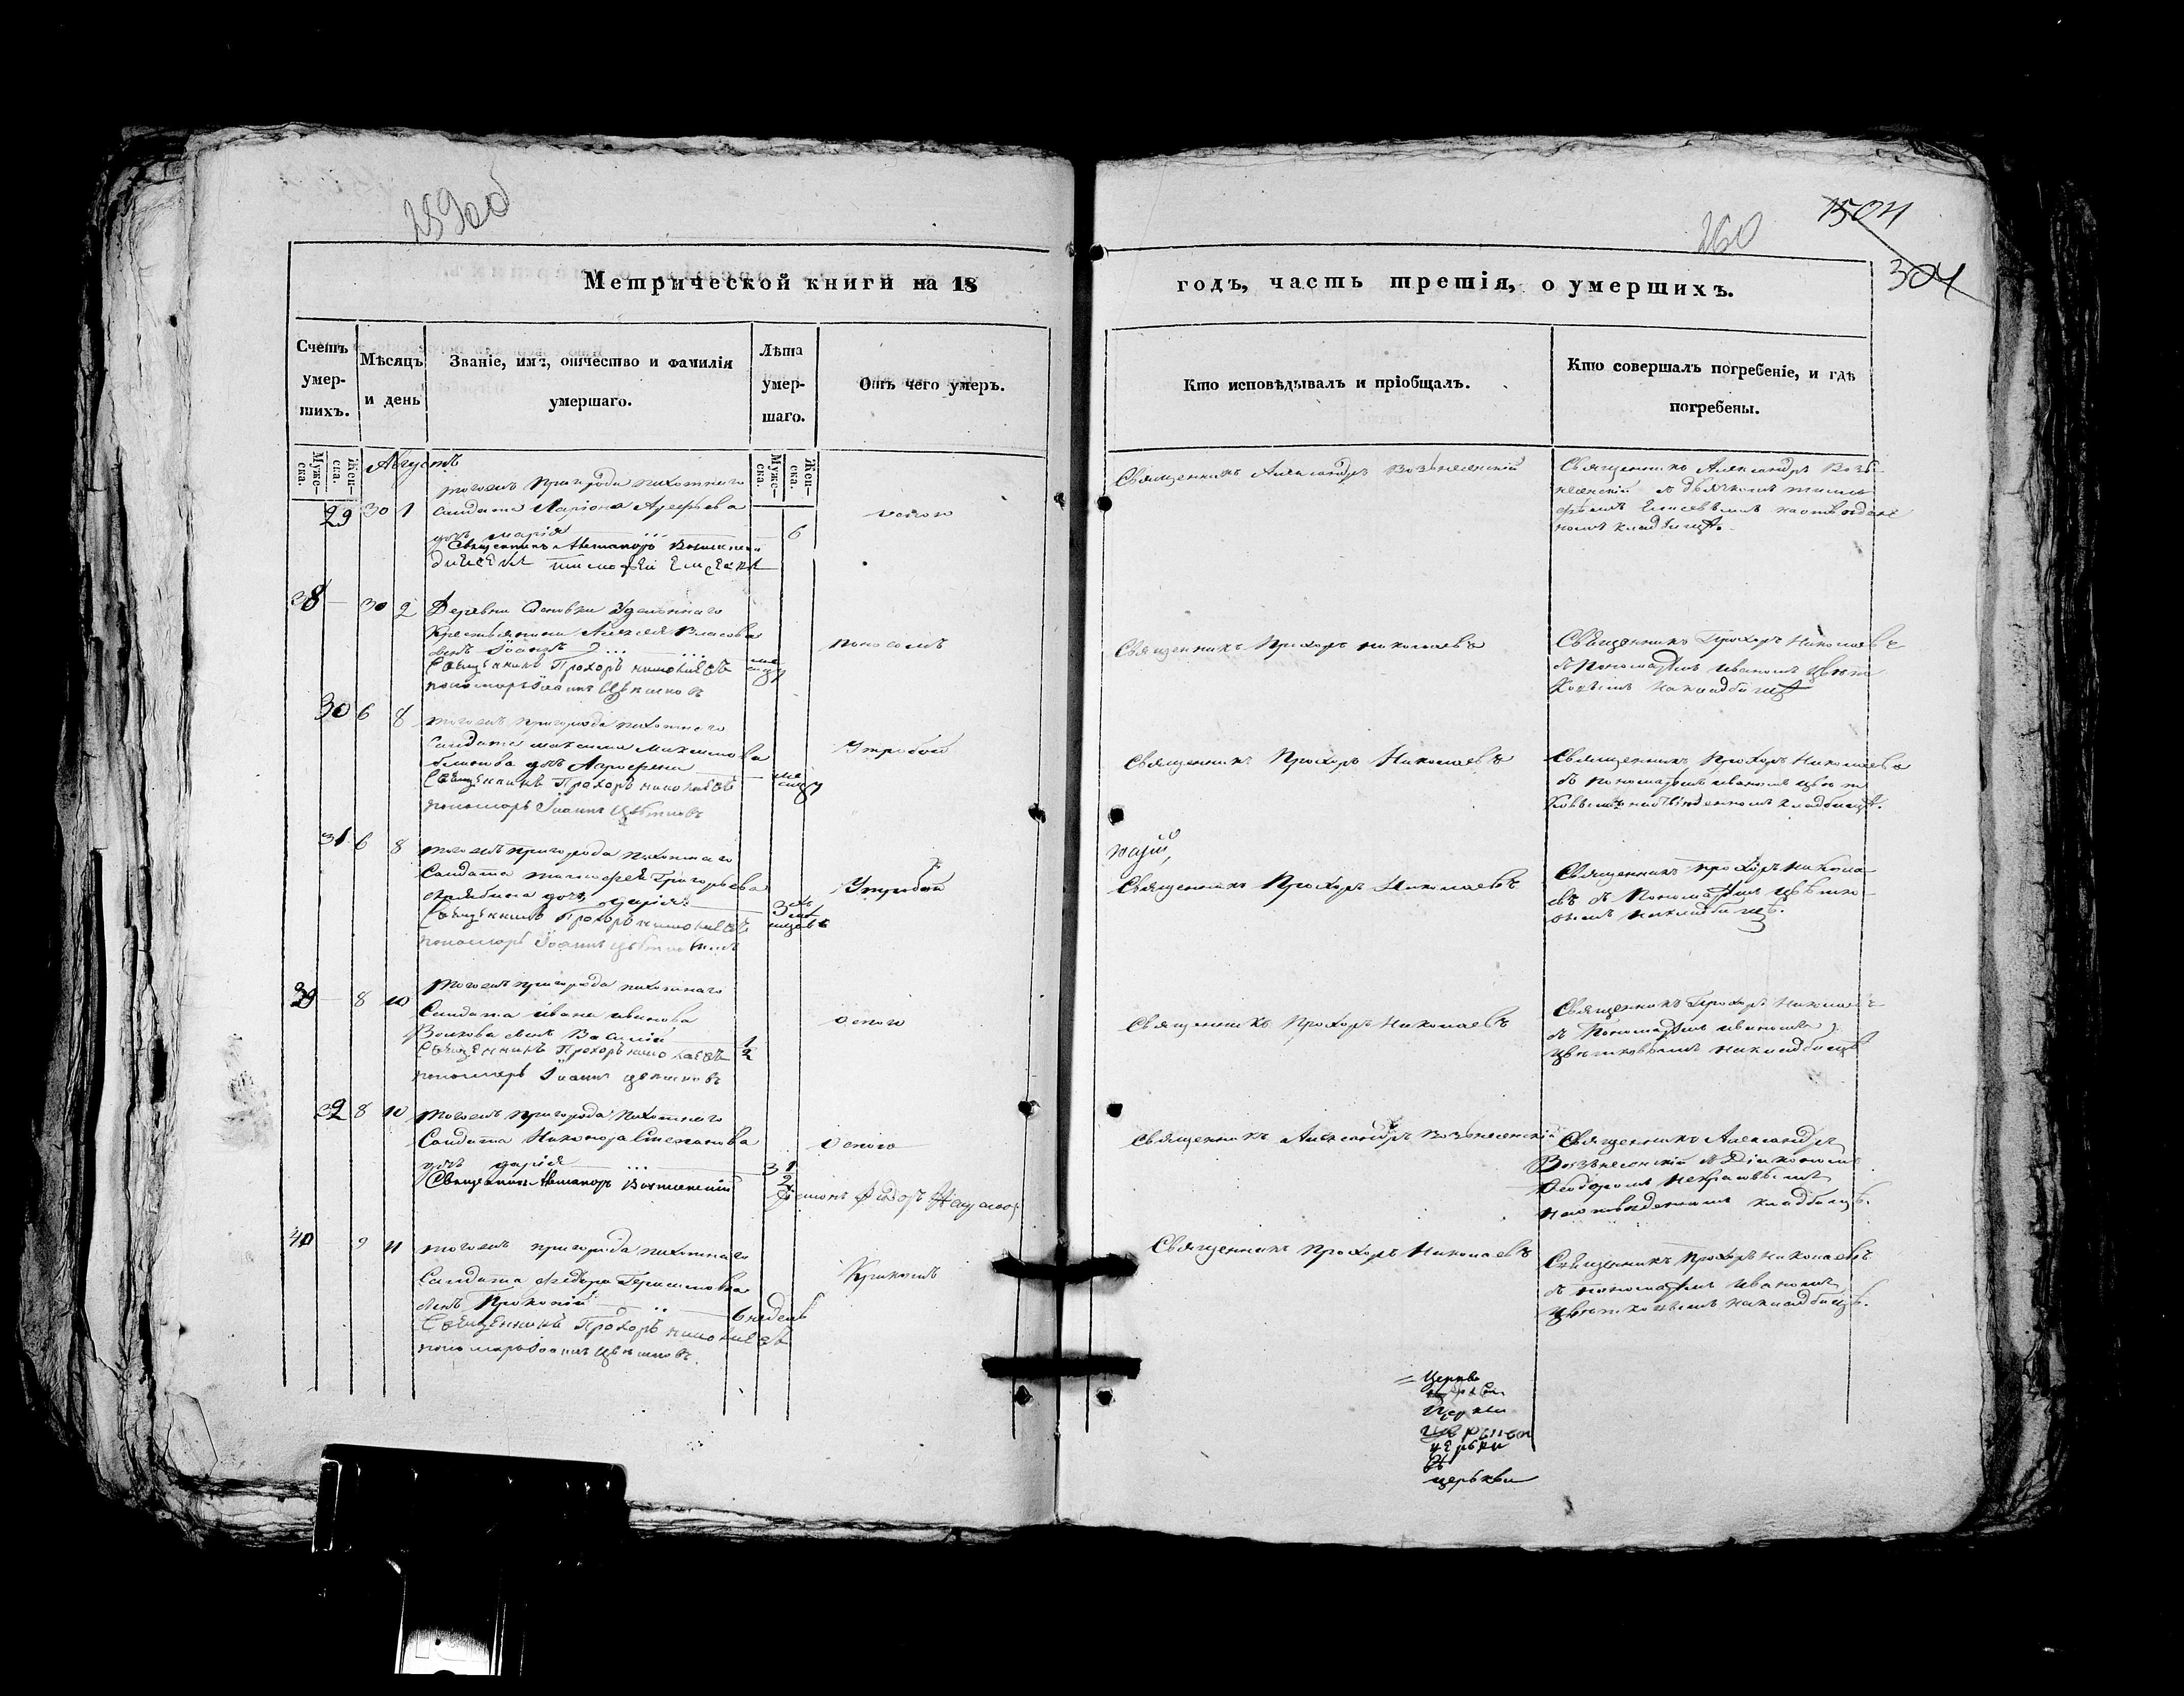 259об
260
1504
304
Метрической книги на 18
годъ, часть третія, о умершихъ.
Счетъ умер-
шихъ.
Мѣсяцъ
и день
Званіе, имя, отчество и фамилія
умершаго.
Лѣта
умер-
шаго.
Отъ чего умеръ.
Кто исповѣдывалъ и пріобщалъ.
Кто совершалъ погребеніе, и гдѣ
погребены.
Муже-
ска.
Жен-
ска.
Муже-
ска.
Жен-
ска.
Августъ
29 30 1
тогожъ пригорода пахотнаго
Солдата Ларіона Арефьева
дочь Марія
6
оспою
Священникъ Александръ Вознесенскій
дьячекъ Тимофей Елисеевъ
Священникъ Александръ Возънесенскій
Священникъ Александръ Возъ-
несенскій съ дьячкомъ Тимо-
феемъ Елисеевымъ на отведен
номъ кладбищѣ.
38 30 2
Деревни Удельнаго
Крестьянина Алексея Власова
сынъ Іоаннъ
поносомъ
Священникъ Прохоръ Николаевъ
пономарь Іоаннъ Цветковъ
Священникъ Прохоръ Николаевъ
Священникъ Прохоръ Николаевъ
съ Пономаремъ Иваномъ Цвѣт
ковымъ на кладбищѣ
30 6 8
тогожъ пригорода пахотнаго
Солдата Максима Максимова
дочь Агрофена
Утробой
Священникъ Прохоръ Николаевъ
пономарь Іоаннъ Цвѣтковъ
Священникъ Прохоръ Николаевъ
Священникъ Прохоръ Николаевъ
съ пономаремъ Иваномъ Цвѣт
ковымъ на отведенномъ кладбищѣ.
31 6 8
тогожъ пригорода пахотнаго
Солдата Тимофея Григорьева
дочь Марія
3
Утробой
Священникъ Прохоръ Николаевъ
пономарь Іоаннъ Цветковъ
Священникъ Прохоръ Николаевъ
Священникъ Прохоръ Никола-
евъ съ Пономаремъ Цвѣтко-
вымъ на кладбищѣ.
39 8 10
тогожъ пригорода пахотнаго
Солдата Ивана Иванова
Волкова сынъ Василій
1/2
оспою
Священникъ Прохоръ Николаевъ
пономарь Іоаннъ Цветковъ
Священникъ Прохоръ Николаевъ
Священникъ Прохоръ Николаевъ
съ Пономаремъ Иваномъ
Цветковымъ на кладбищѣ
32 8 10
тогожъ пригорода пахотнаго
Солдата Никонора Степанова
дочь Дарія
3 1/2
оспою
Священникъ Александръ Вознесенскій
Священникъ Александръ Возънесенскій
Священникъ Александръ
Возънесенскій съ Діакономъ
Феодоромъ Некрасовымъ
на отведенномъ кладбищѣ.
40 9 11
тогожъ пригорода пахотнаго
Солдата Федора Герасимова
сынъ Прокопій
6 недель
Крикомъ
Священникъ Прохоръ Николаевъ
пономарь Іоаннъ Цветковъ.
Священникъ Прохоръ Николаевъ
Священникъ Прохоръ Николаевъ
съ пономаремъ Иваномъ
Цветковымъ на кладбищѣ.
Церкве
Церкви
церькви